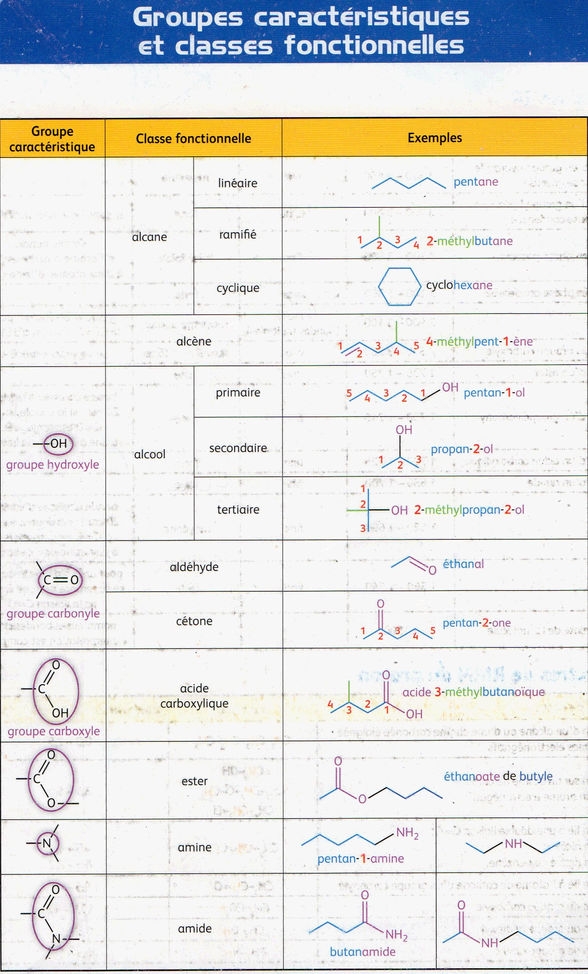 Groupes caractéristiques
et classes fonctionnelles
Groupe
caractéristique
Classe fonctionnelle
Exemples
alcane
linéaire
pentane
ramifié
1 2 3 4
2-méthylbutane
cyclique
cyclohexane
alcène
1 2 3 4 5
4-méthylpent-1-ène
—OH
groupe hydroxyle
alcool
primaire
5 4 3 2 1 OH
pentan-1-ol
secondaire
OH
1 2 3
propan-2-ol
tertiaire
1
2 OH
3
2-méthylpropan-2-ol
C=O
groupe carbonyle
aldéhyde
O
éthanal
cétone
O
1 2 3 4 5
pentan-2-one
O
C
OH
groupe carboxyle
acide
carboxylique
O
4 3 2 1 OH
acide 3-méthylbutanoïque
O
C
O
ester
O
O
éthanoate de butyle
N
amine
NH2
pentan-1-amine
NH
O
C
N
amide
O
NH2
butanamide
O
NH